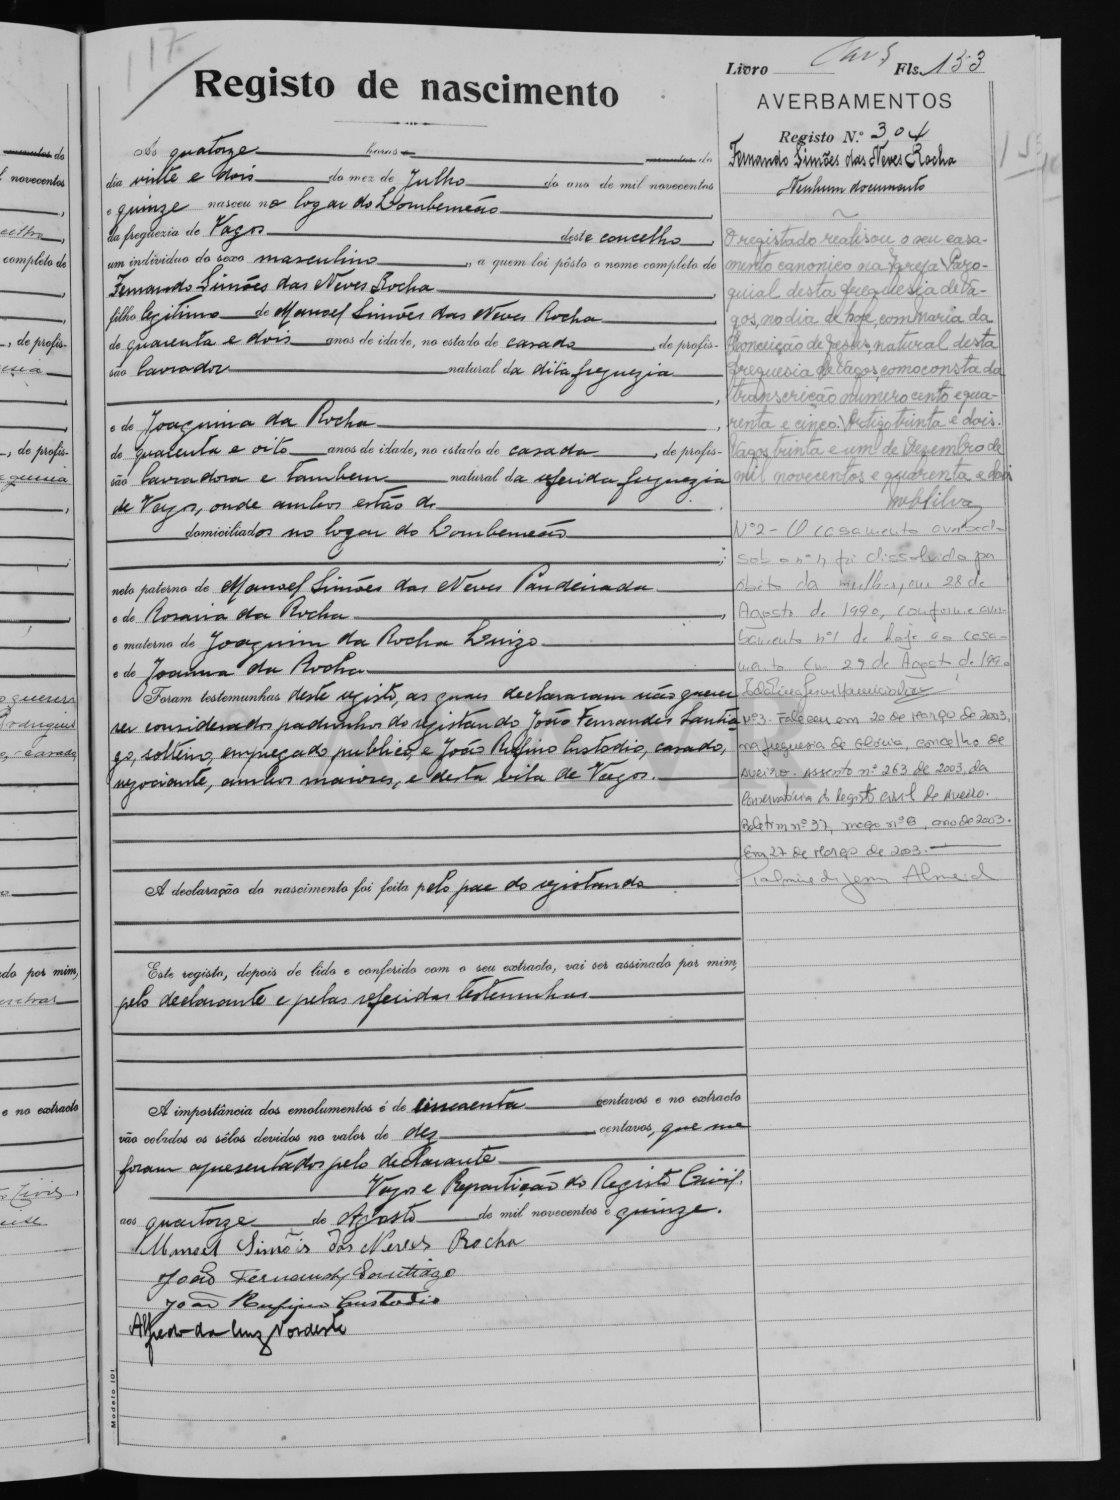 117
Registo de nascimento
Às quatorze horas do
dia vinte e dois do mez de Julho do ano de mil novecentos
e quinze nasceu no logar do Lombomeão
da freguezia de Vagos deste concelho,
um individuo do sexo masculino, a quem foi pôsto o nome completo de
Fernando Simões das Neves Rocha
filho legitimo de Manoel Simões das Neves Rocha
de quarenta e dois anos de idade, no estado de casado, de profis-
são lavrador natural da dita freguezia
e de Joaquina da Rocha
de quarenta e oito anos de idade, no estado de casada, de profis-
são lavradora e tambem natural da referida freguezia
de Vagos, onde ambos estão
domiciliados no logar do Lombomeão
neto paterno de Manoel Simões das Neves Pandeirada
e de Rosaria da Rocha
e materno de Joaquim da Rocha Luizo
e de Joanna da Rocha
Foram testemunhas deste registo, as quaes declararam não querer
ser considerados padrinhos do registando João Fernandes Santia-
go, solteiro, empregado publico, e João Rufino Custodio, casado,
negociante, ambos maiores, e desta vila de Vagos.
A declaração do nascimento foi feita pelo pae do registando
Este registo, depois de lido e conferido com o seu extracto, vai ser assinado por mim,
pelo declarante e pelas referidas testemunhas
A importância dos emolumentos é de cincoenta centavos e no extracto
vão colados os sêlos devidos no valor de dez centavos, que me
foram apresentados pelo declarante
Vagos e Repartição do Registo Civil.
aos quartorze de Agosto de mil novecentos e quinze.
Manoel Simões das Neves Rocha
João Fernandes Santiago
João Rufino Custodio
Alfredo da Cruz Nordeste
Modelo 101
Livro Fls. 153
AVERBAMENTOS
Registo N.º 304
Fernando Simões das Neves Rocha
Nenhum documento
O registado realisou o seu casa-
mento canonico na Igreja Paro-
quial desta freguesia de Va-
gos, no dia de hoje, com Maria da
Conceição de Jesus, natural desta
freguesia de Vagos, como consta da
transcrição numero cento e qua-
renta e cinco. Artigo trinta e dois.
Vagos, trinta e um de Dezembro de
mil novecentos e quarenta e dois
Nº 2 - O casamento averbado
sob o nº 1 foi dissolvido por
óbito da mulher, em 28 de
Agosto de 1990, conforme aver-
bamento nº 1 de hoje ao casa-
mento. Em 29 de Agosto de 1990
Nº 3. Faleceu em 20 de Março de 2003,
na freguesia de Glória, concelho de
Aveiro. Assento nº 263 de 2003, da
Conservatória do Registo Civil de Aveiro.
Boletim nº 37, maço nº 8, ano de 2003.
Em 27 de Março de 2003.